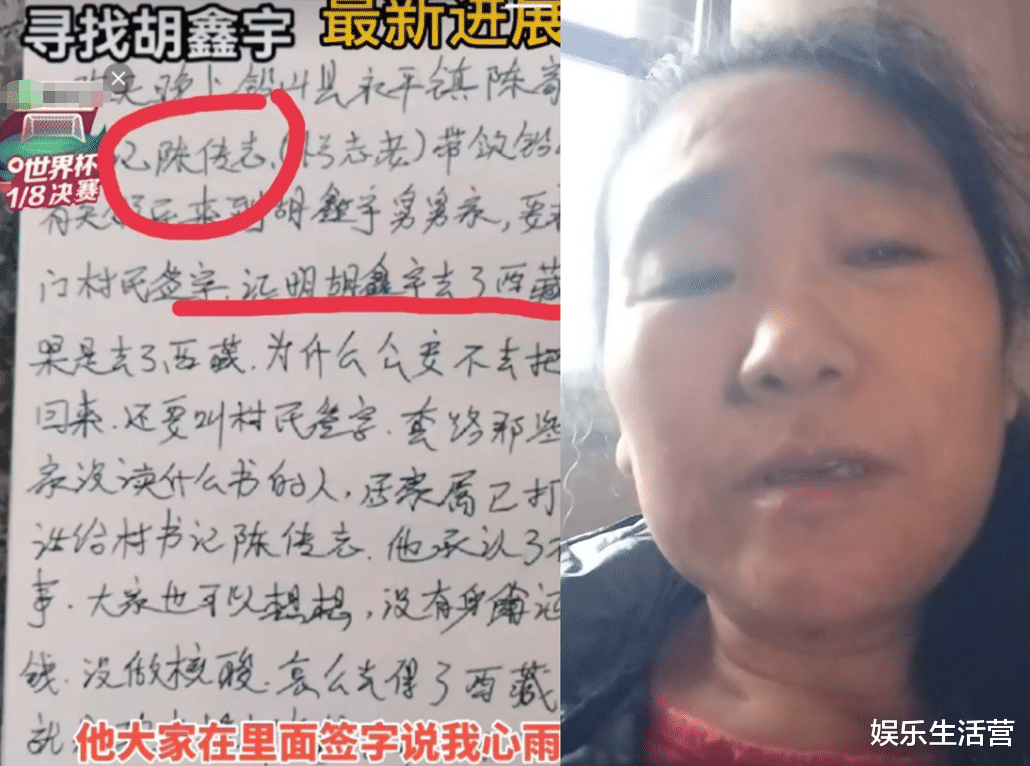 寻找胡鑫宇 最新进展
县永平镇陈
世界杯
1/8决赛
记陈传志，(外号志老)带
来到胡鑫宇舅舅家，要
门村民签字，证明胡鑫宇去了西藏
果是去了西藏，为什么公安不去把
回来，还要叫村民签字，套路那些
家没读什么书的人，
家属已打
话给村书记陈传志，他承认了
事，大家也可以想想，没有身份证
钱，没做核酸，怎么
了西藏
他大家在里面签字说我心雨
娱乐生活营